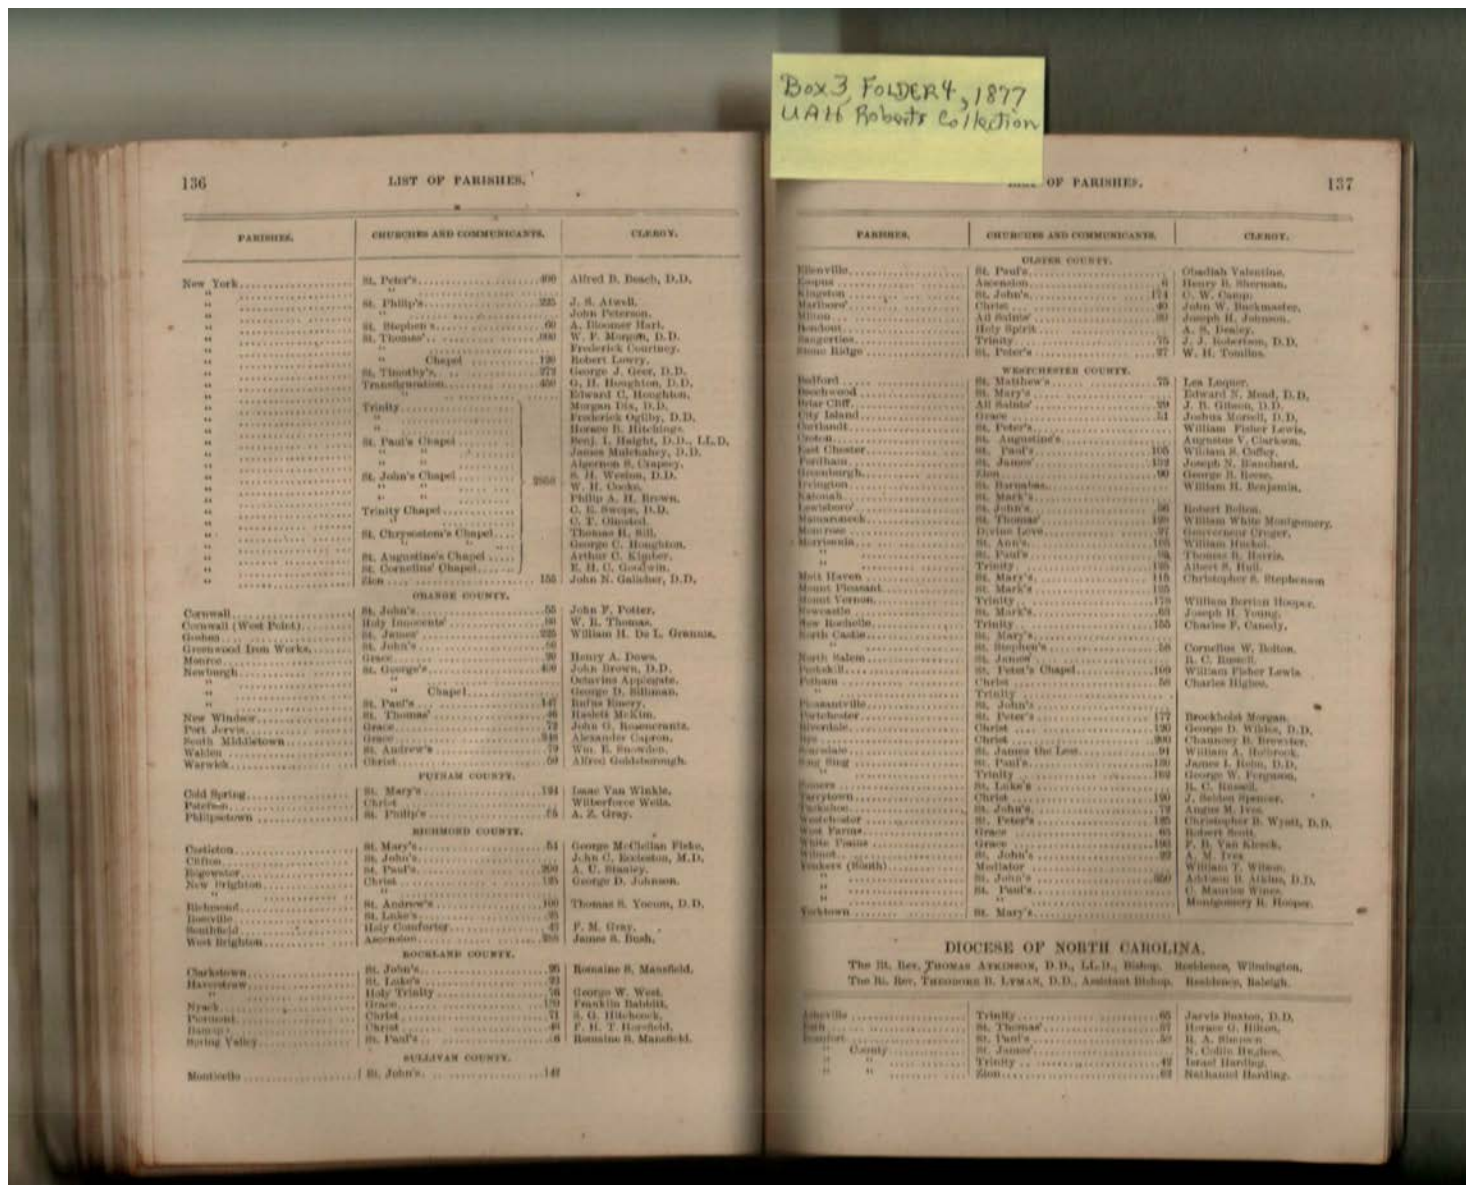 Box 3, FOLDER 4, 1877
UAH Roberts Collection
136
LIST OF PARISHES.
PARISHES.
CHURCHES AND COMMUNICANTS.
CLERGY.
New York St. Peter's 400 Alfred B. Beach, D.D.
St. Philip's 225 J. S. Atwell.
John Peterson.
St. Stephen's 60 A. Bloomer Hart.
St. Thomas' W. F. Morgan, D.D.
Frederick Courtney.
" Chapel 120 Robert Lowry.
St. Timothy's 272 George J. Geer, D.D.
Transfiguration 450 G. H. Houghton, D.D.
Edward C. Houghton.
Trinity Morgan Dix, D.D.
" Frederick Ogilby, D.D.
" Horace B. Hitchings.
St. Paul's Chapel Benj. I. Haight, D.D., LL.D.
" " James Mulchahey, D.D.
" " Algernon S. Crapsey.
St. John's Chapel S. H. Weston, D.D.
" " W. H. Cooke.
" " Philip A. H. Brown.
Trinity Chapel C. E. Swope, D.D.
" C. T. Olmsted.
St. Chrysostom's Chapel Thomas H. Sill.
George C. Houghton.
St. Augustine's Chapel Arthur C. Kimber.
St. Cornelius' Chapel E. H. C. Goodwin.
Zion 155 John N. Galleher, D.D.
ORANGE COUNTY.
Cornwall St. John's 55 John F. Potter.
Cornwall (West Point) Holy Innocents' W. R. Thomas.
Goshen St. James' 225 William H. De L. Grannis.
Greenwood Iron Works St. John's
Monroe Grace Henry A. Dows.
Newburgh St. George's John Brown, D.D.
" " Octavius Applegate.
" " Chapel George D. Silliman.
" St. Paul's 147 Rufus Emery.
New Windsor St. Thomas' Haslett McKim.
Port Jervis Grace 72 John G. Rosencrantz.
South Middletown Grace Alexander Capron.
Walden St. Andrew's 79 Wm. E. Snowden.
Warwick Christ 50 Alfred Goldsborough.
PUTNAM COUNTY.
Cold Spring St. Mary's 124 Isaac Van Winkle.
Paterson Christ Wilberforce Wells.
Philipsetown St. Philip's A. Z. Gray.
RICHMOND COUNTY.
Castleton St. Mary's 54 George McClellan Fiske.
Clifton St. John's John C. Eccleston, M.D.
Edgewater St. Paul's 200 A. U. Stanley.
New Brighton Christ 125 George D. Johnson.
Richmond St. Andrew's 100 Thomas S. Yocum, D.D.
Rossville St. Luke's
Southfield Holy Comforter F. M. Gray.
West Brighton Ascension James S. Bush.
ROCKLAND COUNTY.
Clarkstown St. John's Romaine S. Mansfield.
Haverstraw St. Luke's
" Holy Trinity George W. West.
Nyack Grace Franklin Babbitt.
Piermont Christ 71 S. G. Hitchcock.
Christ F. H. T. Horsfield.
Spring Valley St. Paul's Romaine S. Mansfield.
SULLIVAN COUNTY.
Monticello St. John's 142
OF PARISHES.
137
PARISHES.
CHURCHES AND COMMUNICANTS.
CLERGY.
ULSTER COUNTY.
Ellenville St. Paul's Obadiah Valentine.
Esopus Ascension Henry B. Sherman.
Kingston St. John's 174 C. W. Camp.
Marlboro' Christ John W. Buckmaster.
Milton All Saints' Joseph H. Johnson.
Rondout Holy Spirit A. S. Dealey.
Saugerties Trinity 75 J. J. Robertson, D.D.
Stone Ridge St. Peter's 27 W. H. Tomlins.
WESTCHESTER COUNTY.
Bedford St. Matthew's 75 Lea Luquer.
Beechwood St. Mary's Edward N. Mead, D.D.
Briar Cliff All Saints' J. B. Gibson, D.D.
City Island Grace Joshua Morsell, D.D.
Cortlandt St. Peter's William Fisher Lewis.
Croton St. Augustine's Augustus V. Clarkson.
East Chester St. Paul's 105 William S. Coffey.
Fordham St. James' Joseph N. Blanchard.
Greenburgh Zion 90 George B. Reese.
Irvington St. Barnabas William H. Benjamin.
Katonah St. Mark's
Lewisboro' St. John's Robert Bolton.
Mamaroneck St. Thomas' William White Montgomery.
Montrose Divine Love Gouverneur Cruger.
Morrisania St. Ann's William Huckel.
" St. Paul's Thomas R. Harris.
" Trinity Albert S. Hull.
Mott Haven St. Mary's 115 Christopher S. Stephenson
Mount Pleasant St. Mark's
Mount Vernon Trinity William Berrian Hooper.
Newcastle St. Mark's Joseph H. Young.
New Rochelle Trinity 155 Charles F. Canedy.
North Castle St. Mary's
" St. Stephen's Cornelius W. Bolton.
North Salem St. James' R. C. Russell.
Peekskill St. Peter's Chapel William Fisher Lewis
Pelham Christ Charles Higbee.
" Trinity
Pleasantville St. John's
Portchester St. Peter's 177 Brockholst Morgan.
Riverdale Christ George D. Wildes, D.D.
Rye Christ Chauncey B. Brewster.
Scarsdale St. James the Less 91 William A. Holbrook.
Sing Sing St. Paul's James I. Helm, D.D.
" Trinity George W. Ferguson.
Somers St. Luke's R. C. Russell.
Tarrytown Christ J. Selden Spencer.
Tuckahoe St. John's 72 Angus M. Ives.
Westchester St. Peter's Christopher B. Wyatt, D.D.
West Farms Grace 65 Robert Scott.
White Plains Grace F. B. Van Kleeck.
Wilmot St. John's A. M. Ives
Yonkers (South) Mediator William T. Wilson.
" St. John's Addison B. Atkins, D.D.
" St. Paul's C. Maurice Wines.
" " Montgomery R. Hooper.
Yorktown St. Mary's
DIOCESE OF NORTH CAROLINA.
The Rt. Rev. THOMAS ATKINSON, D.D., LL.D., Bishop. Residence, Wilmington.
The Rt. Rev. THEODORE B. LYMAN, D.D., Assistant Bishop. Residence, Raleigh.
Asheville Trinity 65 Jarvis Buxton, D.D.
Bath St. Thomas' Horace G. Hilton.
Beaufort St. Paul's
" County St. James' N. Collin Hughes.
" " Trinity 42 Israel Harding.
" " Zion 62 Nathaniel Harding.